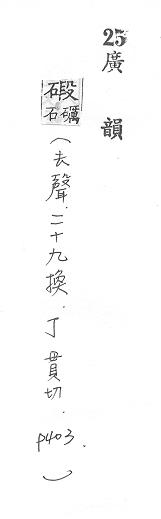 25
廣韻
碫
礪石
(去聲.二十九換.丁貫切.P403.)